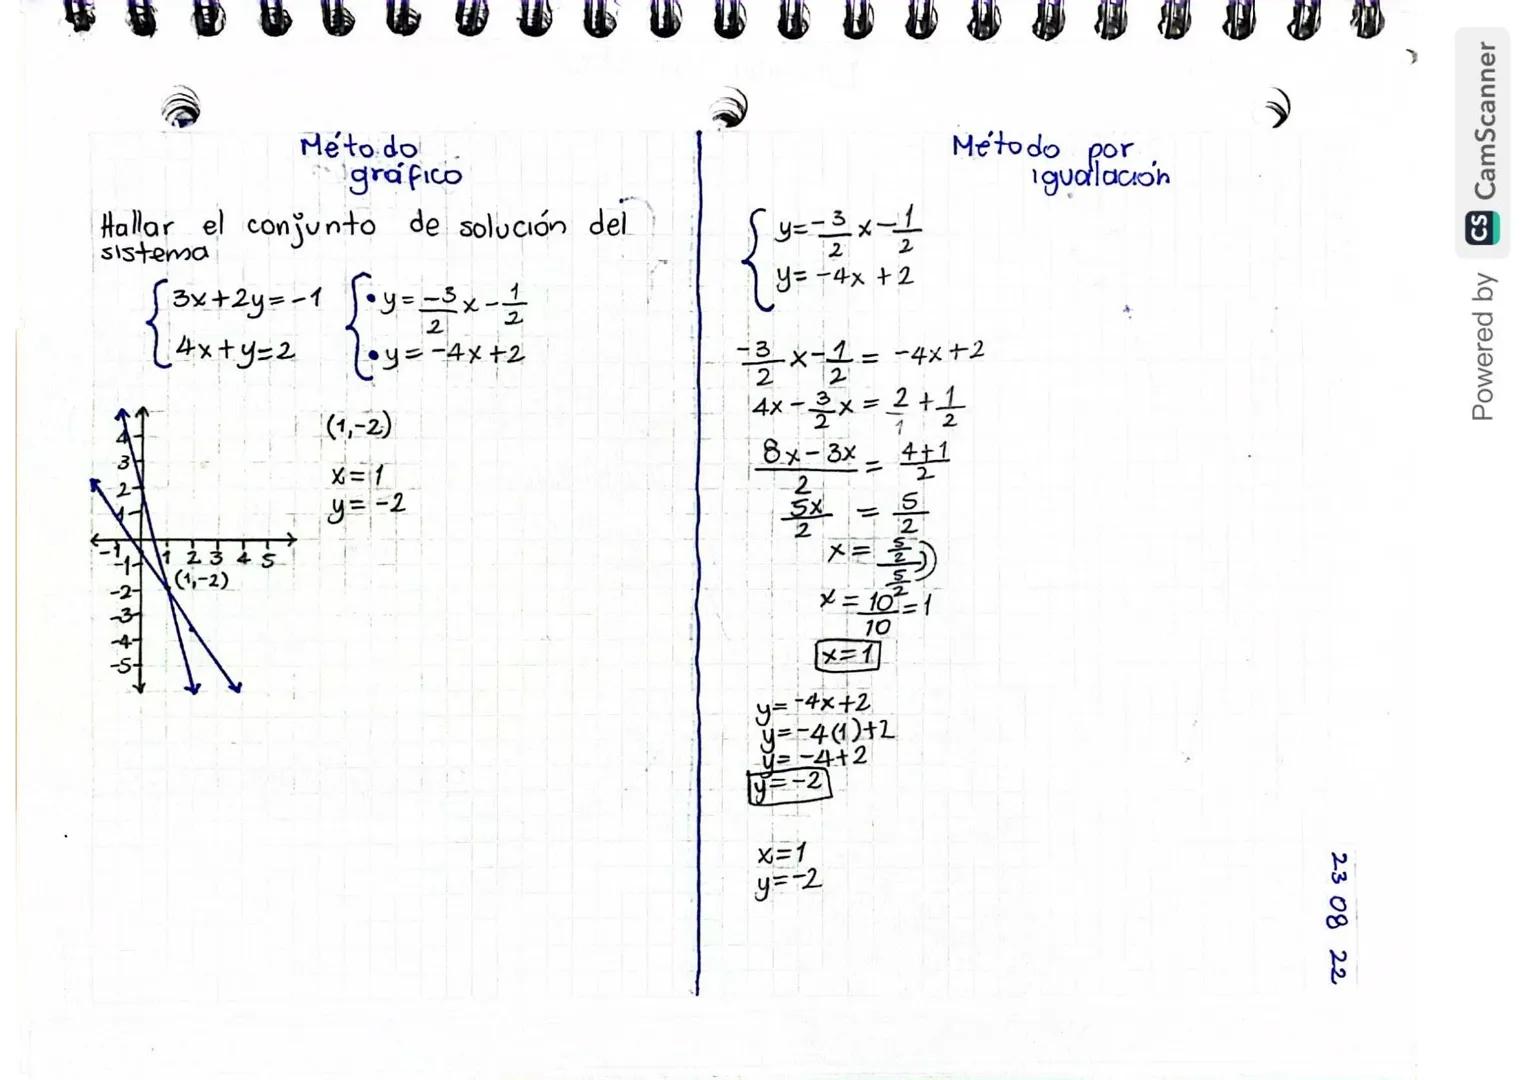 Método
gráfico
Hallar el conjunto de solución del
sistema
3x+2y=-1
4x+y=2
• y=-3/2 x-1/2
• y=-4x+2
4
3
2
1
-1 1 2 3 4 5
-1
-2
-3
-4
-5
(1,-2)
(1,-2)
x=1
y=-2
Método por
igualación
y=-3/2 x-1/2
y=-4x+2
-3/2 x-1/2 = -4x+2
4x-3/2 x = 2/1+1/2
8x-3x/2 = 4+1/2
5x/2 = 5/2
x= 5/2 / 5/2 )
x=10/10=1
x=1
y=-4x+2
y=-4(1)+2
y=-4+2
y=-2
x=1
y=-2
23 08 22
Powered by CS CamScanner